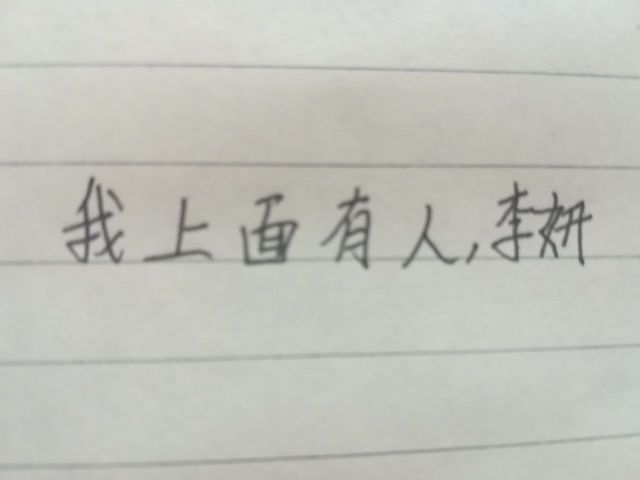 我上面有人,李妍